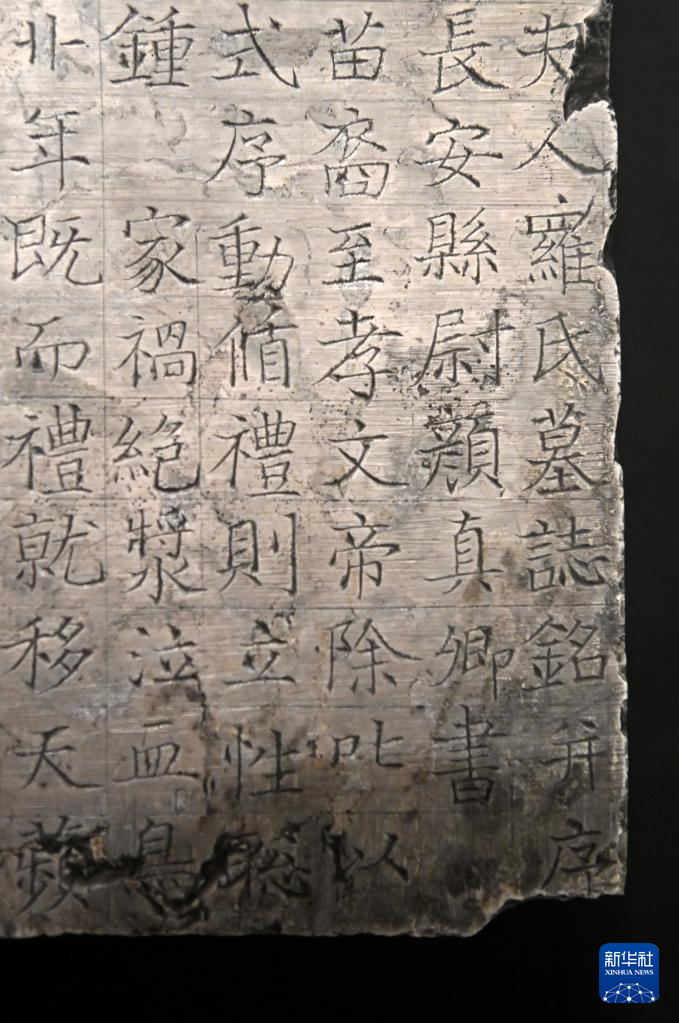 夫人羅氏墓誌銘并序
長安縣尉顏真卿書
苗裔至孝文帝除叱以
式序動循禮則立性聡
鍾 家禍絕漿泣血
年既而禮就移天蘋
新华社
XINHUA NEWS